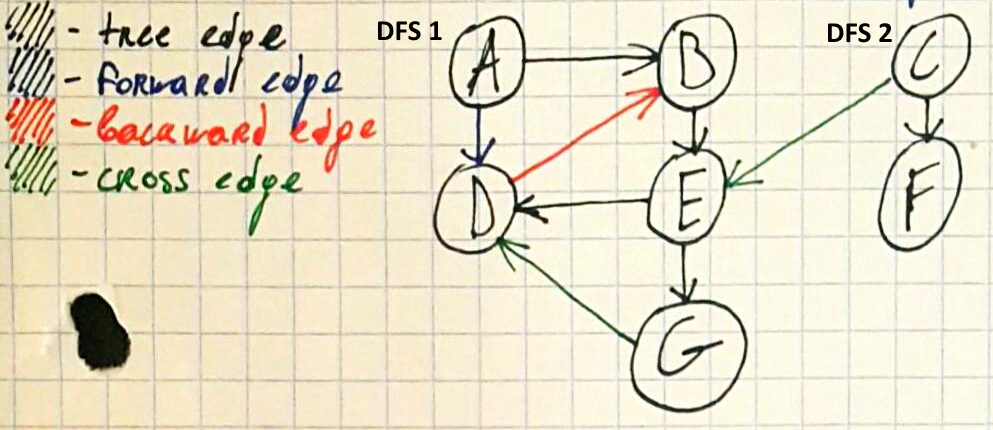 - tree edge
- forward edge
- backward edge
- cross edge
DFS 1
DFS 2
A
B
C
D
E
F
G